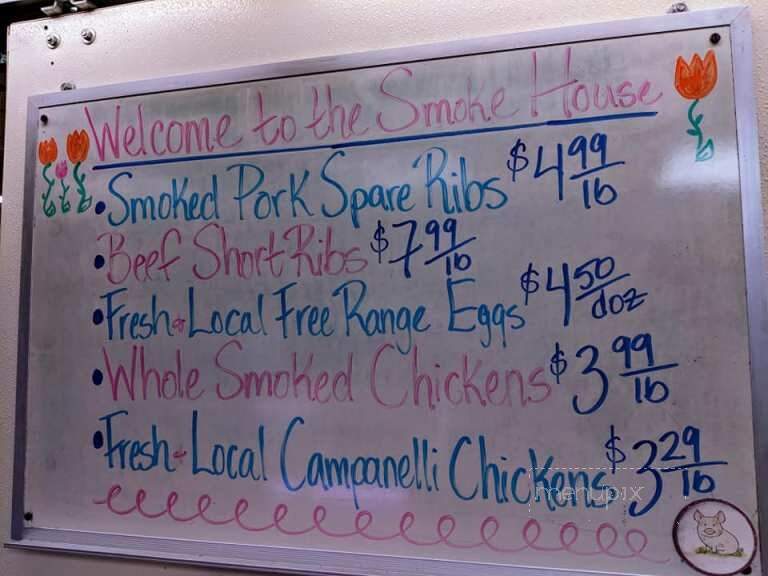 Welcome to the Smoke House
• Smoked Pork Spare Ribs $4 99/lb
• Beef Short Ribs $7 99/lb
• Fresh + Local Free Range Eggs $4 50/doz
• Whole Smoked Chickens $3 99/lb
• Fresh + Local Campanelli Chickens $3 29/lb
menupix